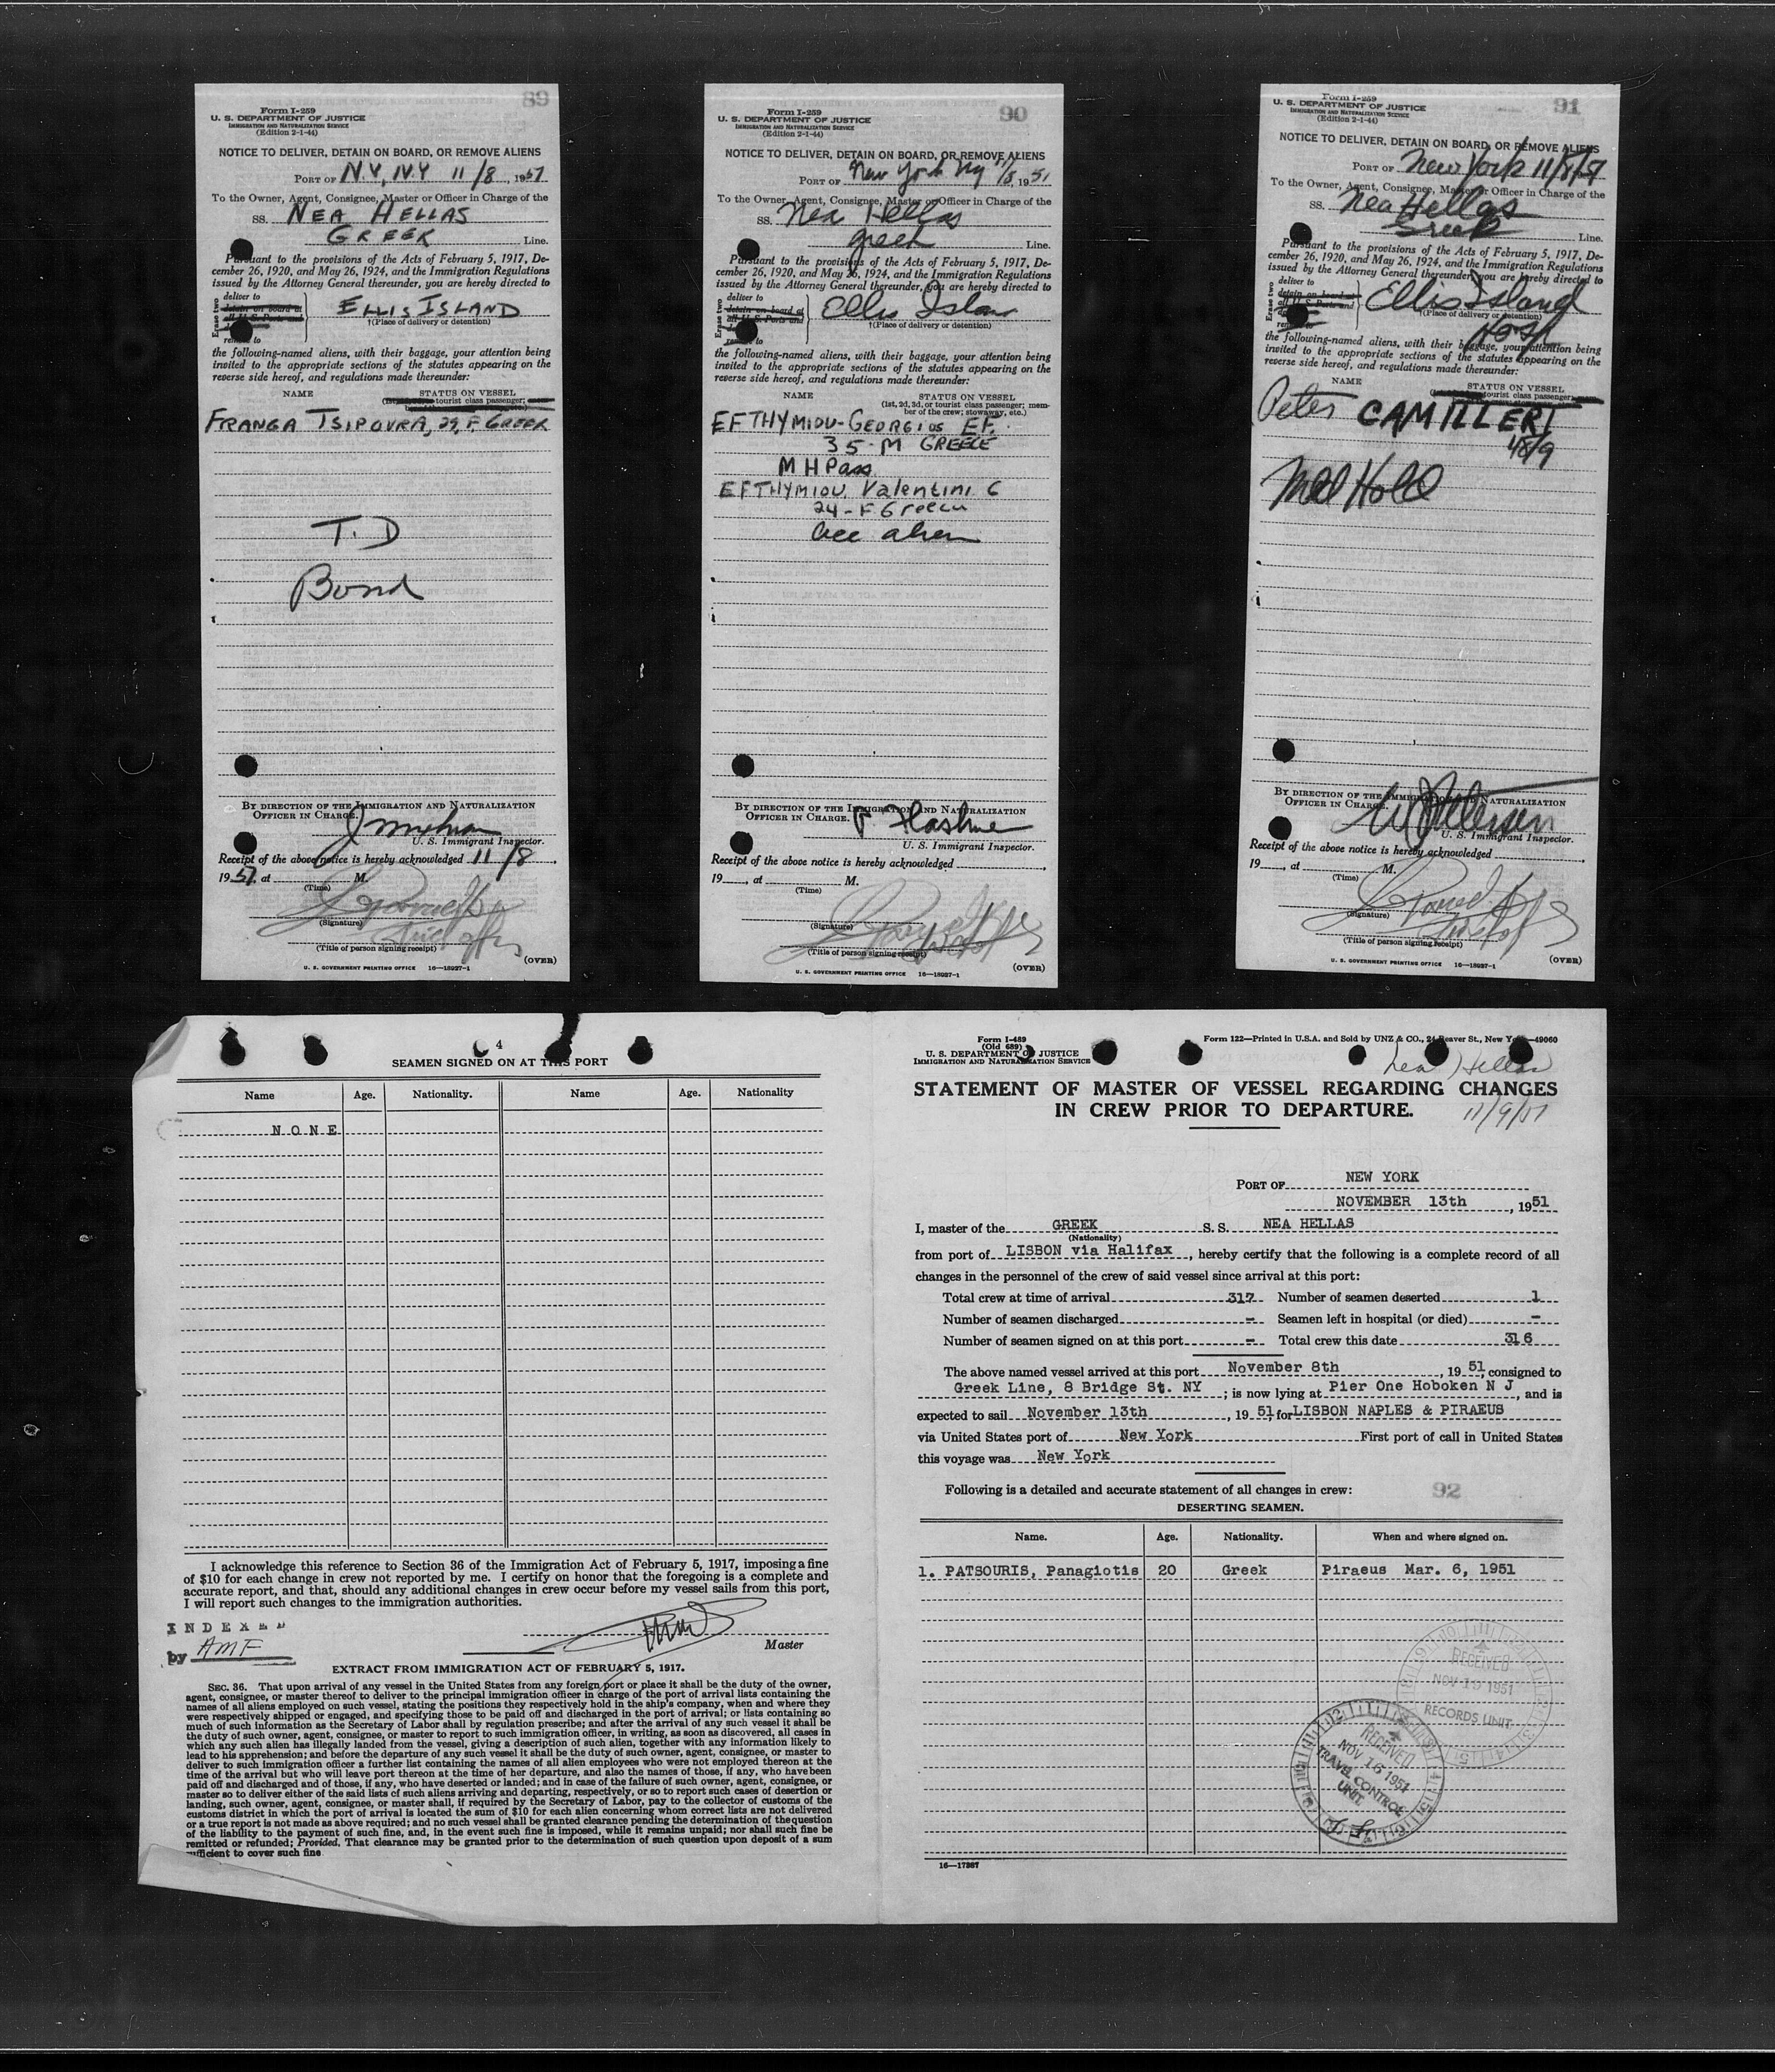 89
Form I-259
U. S. DEPARTMENT OF JUSTICE
IMMIGRATION AND NATURALIZATION SERVICE
(Edition 2-1-44)
NOTICE TO DELIVER, DETAIN ON BOARD, OR REMOVE ALIENS
PORT OF N.Y, N.Y 11/8, 1951
To the Owner, Agent, Consignee, Master or Officer in Charge of the
SS. NEA HELLAS
GREEK Line.
Pursuant to the provisions of the Acts of February 5, 1917, De-
cember 26, 1920, and May 26, 1924, and the Immigration Regulations
issued by the Attorney General thereunder, you are hereby directed to
Erase two
deliver to
detain on board at
all U. S. Ports and
remove to
ELLIS ISLAND
†(Place of delivery or detention)
the following-named aliens, with their baggage, your attention being
invited to the appropriate sections of the statutes appearing on the
reverse side hereof, and regulations made thereunder:
NAME STATUS ON VESSEL
tourist class passenger;
FRANGA TSIPOURA, 29, F. GREEK
T. D
Bond
BY DIRECTION OF THE IMMIGRATION AND NATURALIZATION
OFFICER IN CHARGE.
U. S. Immigrant Inspector.
Receipt of the above notice is hereby acknowledged 11/8,
1951, at M.
(Time)
(Signature)
(Title of person signing receipt)
(OVER)
U. S. GOVERNMENT PRINTING OFFICE 16—18927-1
90
Form I-259
U. S. DEPARTMENT OF JUSTICE
IMMIGRATION AND NATURALIZATION SERVICE
(Edition 2-1-44)
NOTICE TO DELIVER, DETAIN ON BOARD, OR REMOVE ALIENS
PORT OF New York Ny 11/8, 1951
To the Owner, Agent, Consignee, Master or Officer in Charge of the
SS. Nea Hellas
Greek Line.
Pursuant to the provisions of the Acts of February 5, 1917, De-
cember 26, 1920, and May 26, 1924, and the Immigration Regulations
issued by the Attorney General thereunder, you are hereby directed to
Erase two
deliver to
detain on board at
all U. S. Ports and
remove to
Ellis Islan
†(Place of delivery or detention)
the following-named aliens, with their baggage, your attention being
invited to the appropriate sections of the statutes appearing on the
reverse side hereof, and regulations made thereunder:
NAME STATUS ON VESSEL
(1st, 2d, 3d, or tourist class passenger; mem-
ber of the crew; stowaway, etc.)
EFTHYMIOU-GEORGIOS EF.
35-M GREECE
M H Pass
EFTHYMIOU Valentini C
24-F Greece
acc alien
BY DIRECTION OF THE IMMIGRATION AND NATURALIZATION
OFFICER IN CHARGE.
U. S. Immigrant Inspector.
Receipt of the above notice is hereby acknowledged
19, at M.
(Time)
(Signature)
(Title of person signing receipt)
(OVER)
U. S. GOVERNMENT PRINTING OFFICE 16—18927-1
91
Form I-259
U. S. DEPARTMENT OF JUSTICE
IMMIGRATION AND NATURALIZATION SERVICE
(Edition 2-1-44)
NOTICE TO DELIVER, DETAIN ON BOARD, OR REMOVE ALIENS
PORT OF New York 11/8/51
To the Owner, Agent, Consignee, Master or Officer in Charge of the
SS. Nea Hellas
Greek Line.
Pursuant to the provisions of the Acts of February 5, 1917, De-
cember 26, 1920, and May 26, 1924, and the Immigration Regulations
issued by the Attorney General thereunder, you are hereby directed to
Erase two
deliver to
detain on board at
all U. S. Ports and
Ellis Island
†(Place of delivery or detention)
Hosp
the following-named aliens, with their baggage, your attention being
invited to the appropriate sections of the statutes appearing on the
reverse side hereof, and regulations made thereunder:
NAME STATUS ON VESSEL
tourist class passenger;
Peter CAMILLERI
48/9
Med Hold
BY DIRECTION OF THE IMMIGRATION AND NATURALIZATION
OFFICER IN CHARGE.
U. S. Immigrant Inspector.
Receipt of the above notice is hereby acknowledged
19, at M.
(Time)
(Signature)
(Title of person signing receipt)
(OVER)
U. S. GOVERNMENT PRINTING OFFICE 16—18927-1
4
SEAMEN SIGNED ON AT THIS PORT
Name Age. Nationality. Name Age. Nationality
NONE
I acknowledge this reference to Section 36 of the Immigration Act of February 5, 1917, imposing a fine
of $10 for each change in crew not reported by me. I certify on honor that the foregoing is a complete and
accurate report, and that, should any additional changes in crew occur before my vessel sails from this port,
I will report such changes to the immigration authorities.
INDEXED
by AMF
Master
EXTRACT FROM IMMIGRATION ACT OF FEBRUARY 5, 1917.
SEC. 36. That upon arrival of any vessel in the United States from any foreign port or place it shall be the duty of the owner,
agent, consignee, or master thereof to deliver to the principal immigration officer in charge of the port of arrival lists containing the
names of all aliens employed on such vessel, stating the positions they respectively hold in the ship's company, when and where they
were respectively shipped or engaged, and specifying those to be paid off and discharged in the port of arrival; or lists containing so
much of such information as the Secretary of Labor shall by regulation prescribe; and after the arrival of any such vessel it shall be
the duty of such owner, agent, consignee, or master to report to such immigration officer, in writing, as soon as discovered, all cases in
which any such alien has illegally landed from the vessel, giving a description of such alien, together with any information likely to
lead to his apprehension; and before the departure of any such vessel it shall be the duty of such owner, agent, consignee, or master to
deliver to such immigration officer a further list containing the names of all alien employees who were not employed thereon at the
time of the arrival but who will leave port thereon at the time of her departure, and also the names of those, if any, who have been
paid off and discharged and of those, if any, who have deserted or landed; and in case of the failure of such owner, agent, consignee, or
master so to deliver either of the said lists of such aliens arriving and departing, respectively, or so to report such cases of desertion or
landing, such owner, agent, consignee, or master, shall, if required by the Secretary of Labor, pay to the collector of customs of the
customs district in which the port of arrival is located the sum of $10 for each alien concerning whom correct lists are not delivered
or a true report is not made as above required; and no such vessel shall be granted clearance pending the determination of the question
of the liability to the payment of such fine, and, in the event such fine is imposed, while it remains unpaid; nor shall such fine be
remitted or refunded; Provided, That clearance may be granted prior to the determination of such question upon deposit of a sum
sufficient to cover such fine
Form I-489
(Old 689)
U. S. DEPARTMENT OF JUSTICE
IMMIGRATION AND NATURALIZATION SERVICE
Form 122—Printed in U.S.A. and Sold by UNZ & CO., 24 Beaver St., New York—49060
Nea Hellas
STATEMENT OF MASTER OF VESSEL REGARDING CHANGES
IN CREW PRIOR TO DEPARTURE.
11/9/51
PORT OF NEW YORK
NOVEMBER 13th, 1951
I, master of the GREEK S. S. NEA HELLAS
(Nationality)
from port of LISBON via Halifax, hereby certify that the following is a complete record of all
changes in the personnel of the crew of said vessel since arrival at this port:
Total crew at time of arrival 317 Number of seamen deserted 1
Number of seamen discharged - Seamen left in hospital (or died) -
Number of seamen signed on at this port - Total crew this date 316
The above named vessel arrived at this port November 8th, 1951, consigned to
Greek Line, 8 Bridge St. NY; is now lying at Pier One Hoboken N J, and is
expected to sail November 13th, 1951, for LISBON NAPLES & PIRAEUS
via United States port of New York First port of call in United States
this voyage was New York
Following is a detailed and accurate statement of all changes in crew:
92
DESERTING SEAMEN.
Name. Age. Nationality. When and where signed on.
1. PATSOURIS, Panagiotis 20 Greek Piraeus Mar. 6, 1951
RECEIVED
NOV 19 1951
RECORDS UNIT
RECEIVED
NOV 16 1951
TRAVEL CONTROL
UNIT.
16—17387